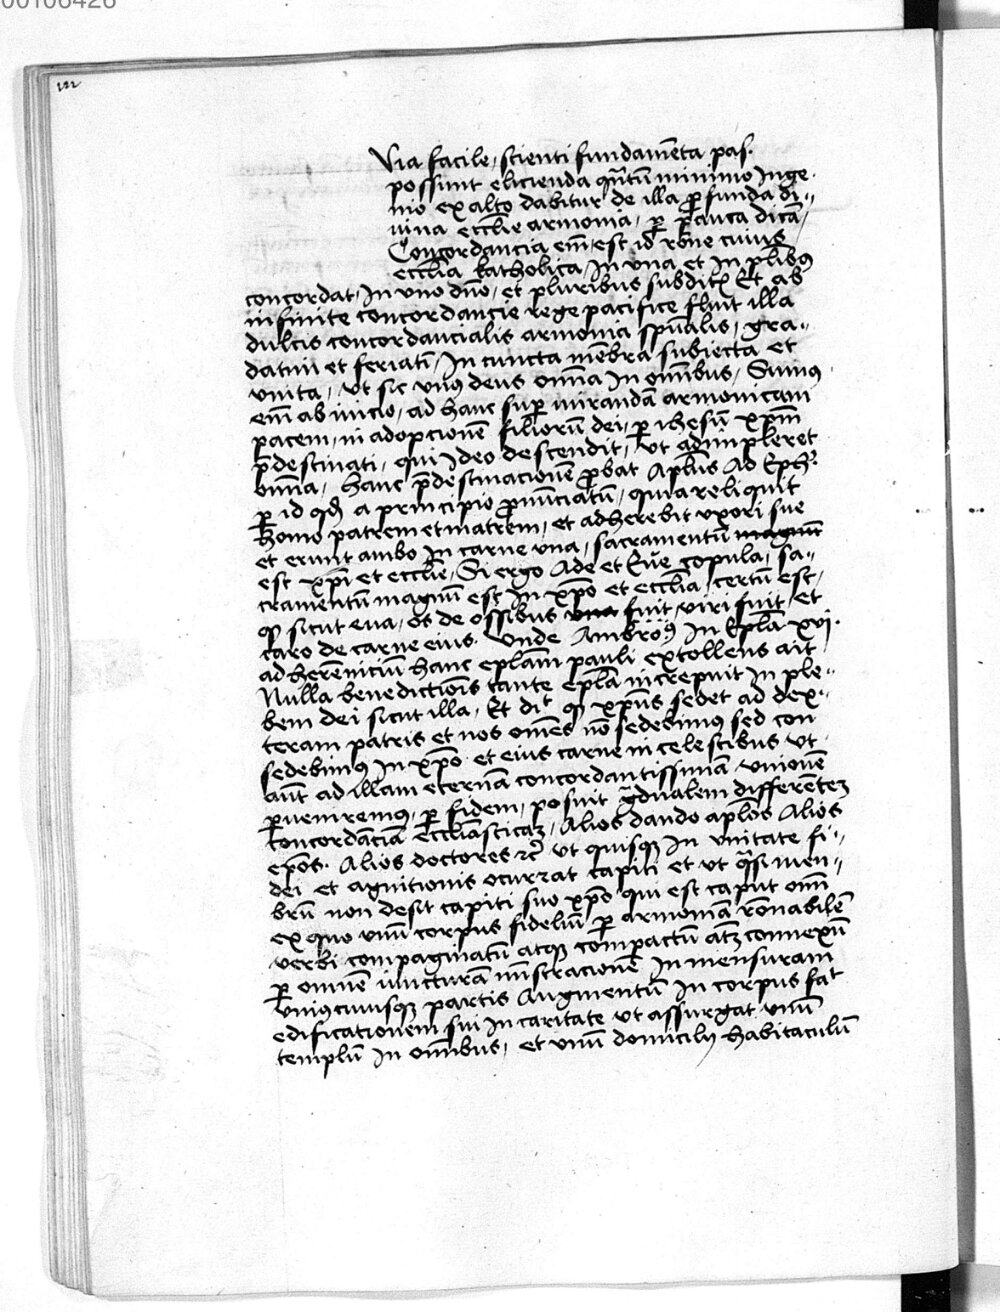 00106426
Uia facile, scienti fundamēta pas
possunt elicienda qͣntū minimo Inge
nio ex alto dabitur de illa ꝓfunda di-
uina eccl̄ie armonia, ꝑ pauca dicā,
Concordancia em̄ est id rōne cuius
eccl̄ia katholica, In vna et In plībꝰ
concordat, In vno dn̄o, et pluribus subditꝭ Et ab
infinite concordancie rege pacifice fluit illa
dulcis concordancialis armonia sp̄ualis, gra-
datim et seriatī, In cuncta mēbra subiecta et
vnita, Ut sic vnꝰ deus om̄ia In om̄ibus, Sumꝰ
em̄ ab inicio, ad hanc suꝑ mirandā armonicam
pacem, in adopcionē filiorū dei, ꝑ ihesū xp̄m
p̄destinati, qui Ideo descendit, Ut adimpleret
om̄ia, hanc p̄destinacionē ꝓbat Ap̄lus Ad Eph.
ꝑ id qd̄ a principio ꝓnūciatū, quia reliquit
homo patrem et matrem, et adherebit vxori sue
et erunt ambo In carne vna, sacramentū magnū
est xp̄i et eccl̄ie, Si ergo Ade et Eue copula, sa-
cramentū magnū est In xp̄o et eccl̄ia, certū est,
ꝙ sicut eua, os de ossibus vna fuit viri fuit, et
caro de carne eius. Unde Ambrō9 In Ep̄la xvj.
ad herēniciū hanc ep̄lam pauli extollens ait
Nulla benedictiōis tante ep̄la increpuit In ple-
bem dei sicut illa, Et dit ꝙ xp̄us sedet ad dex-
teram patris et nos om̄es nō sedebimꝰ sed con
sedebimꝰ In xp̄o et eius carne in celestibus Ut
aūt ad illam eternā concordantissimā vnionē
ꝑueniremꝰ, ꝑ fidem, posuit gͣdualem differētez
Concordāciā eccl̄iasticaz, Alios dando ap̄los Alios
ep̄os. Alios doctores ⁊c̄ Ut quisqꝫ In vnitate fi-
dei et agnitionis ocurrat capiti et Ut qͣsi men-
brū non desit capiti suo xp̄o qui est caput om̄
ex quo vnū corpus fideliū ꝑ armoniā rōnabilē
verbi compaginatū atqꝫ compactū atqꝫ connexū
ꝑ omnē iuncturā ministracionē In mensuram
Uniꝰcuiusqꝫ partis Augmentū In corpus fat
edificationem sui In caritate Ut assurgat vnū
templū In om̄ibus, et vnū domicilij habitaculū